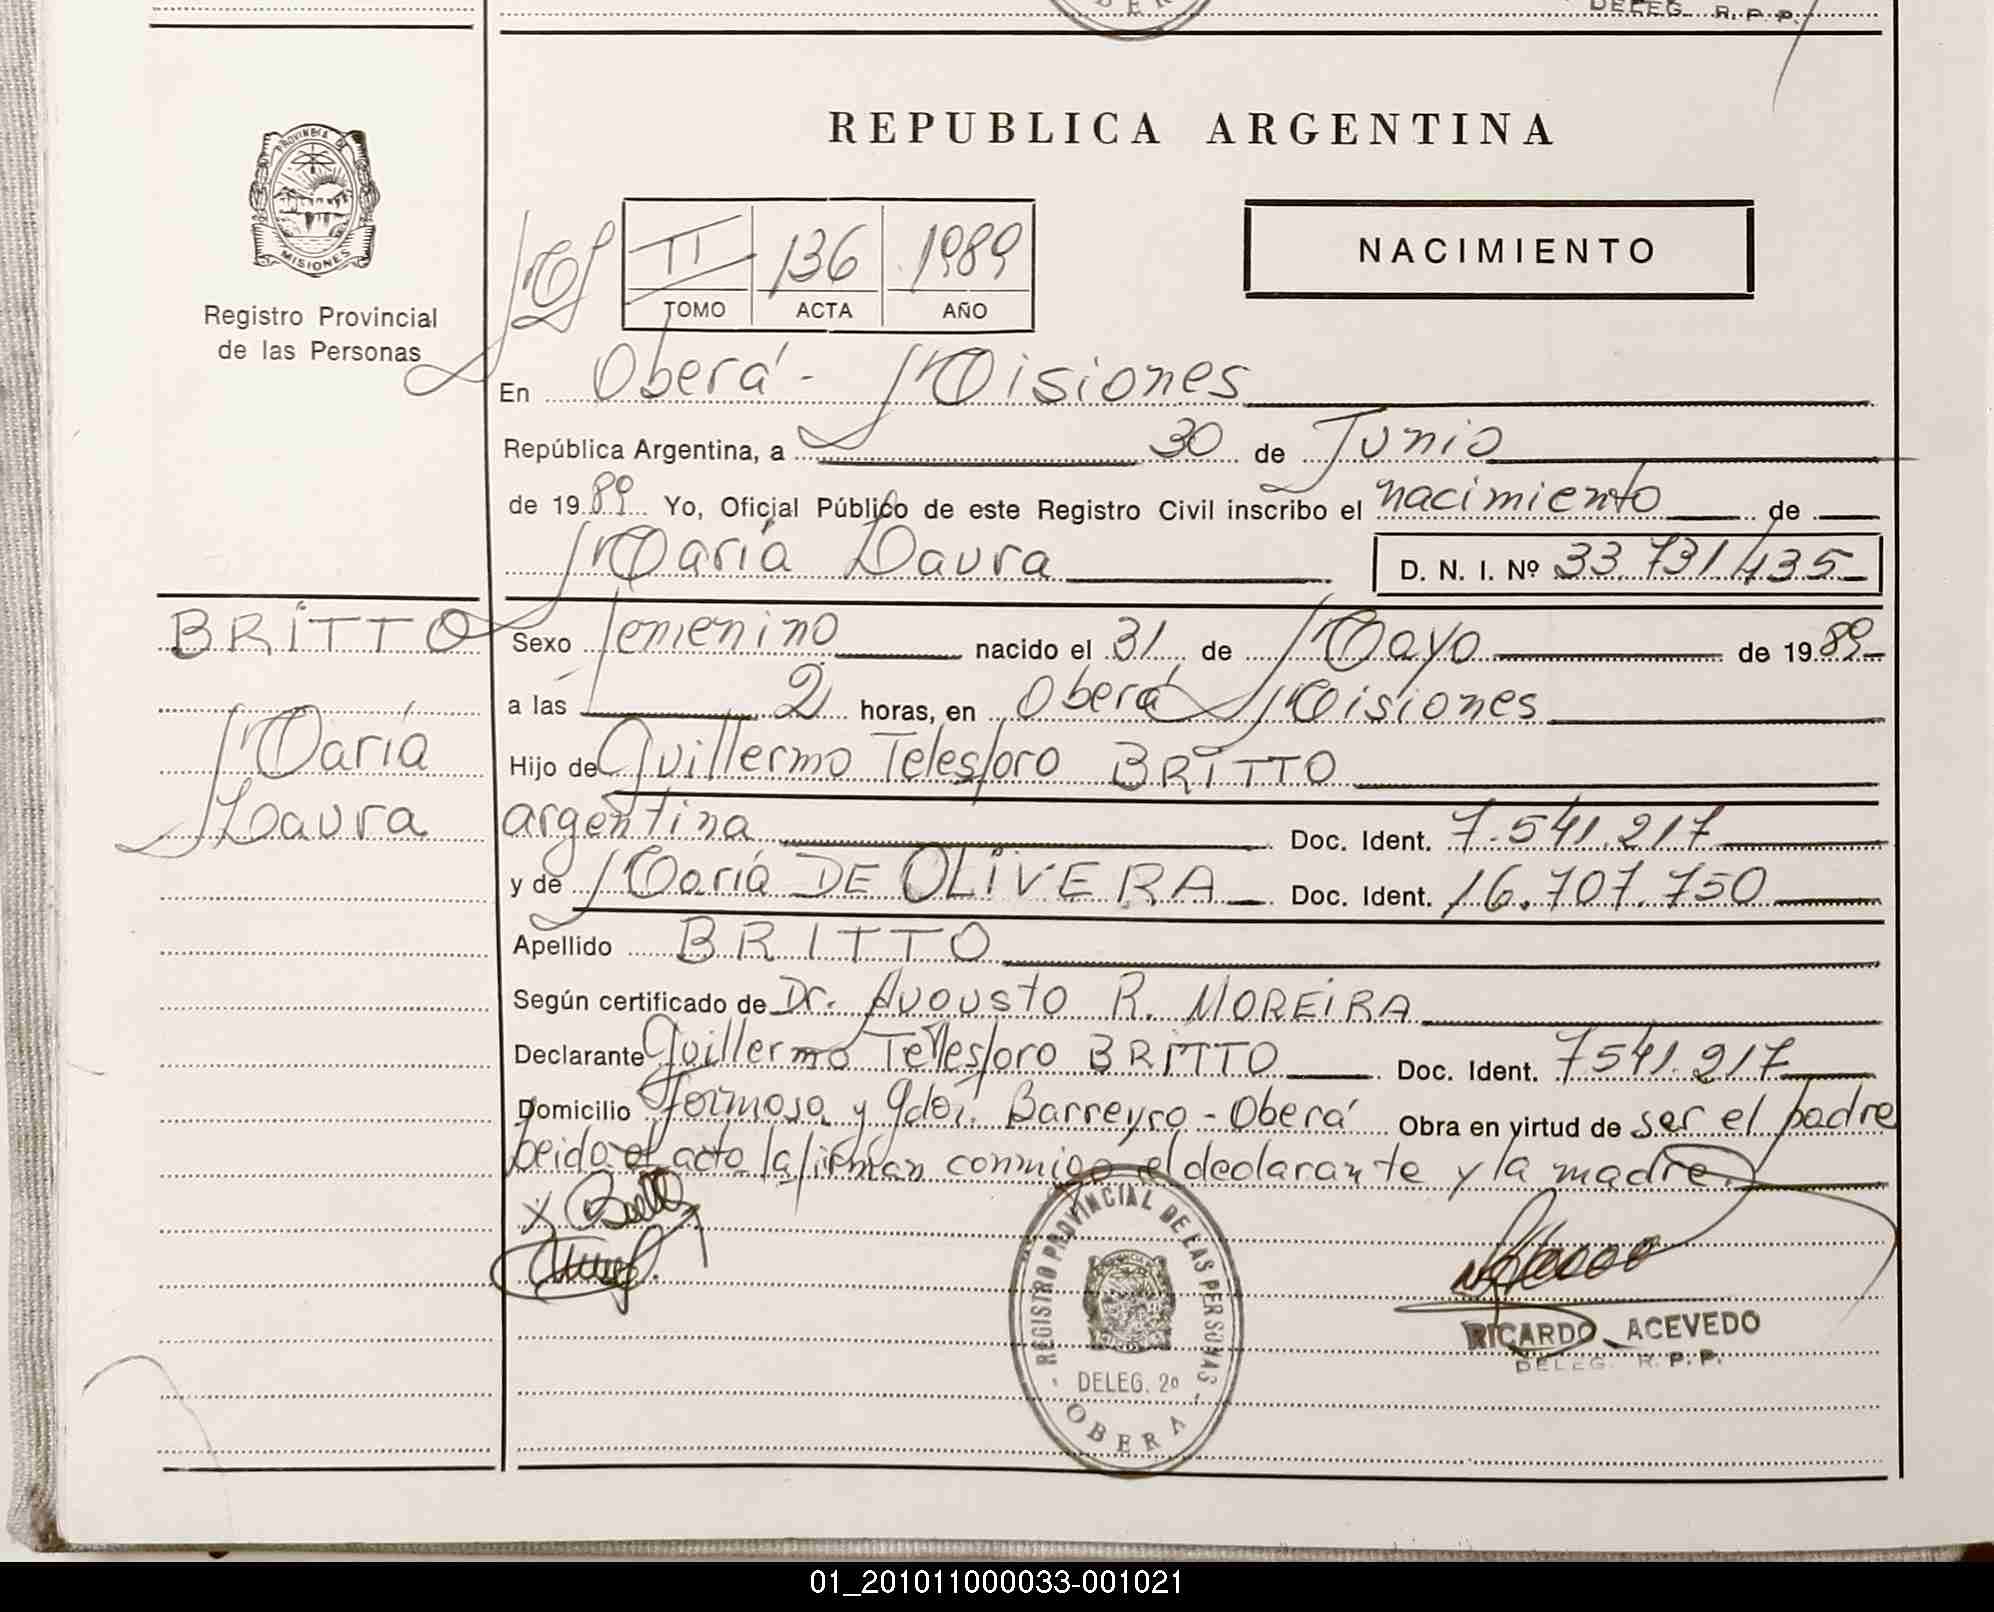 DELEG. R. P. P.
OBERÁ
REPUBLICA ARGENTINA
PROVINCIA DE
MISIONES
Registro Provincial
de las Personas
II 136 1989
TOMO ACTA AÑO
NACIMIENTO
En Oberá - Misiones
República Argentina, a 30 de Junio
de 1989 Yo, Oficial Público de este Registro Civil inscribo el nacimiento de
María Laura D. N. I. Nº 33.731.435
BRITTO
María
Laura
Sexo femenino nacido el 31 de Mayo de 1989
a las 2 horas, en Oberá Misiones
Hijo de Guillermo Telesforo BRITTO
argentina Doc. Ident. 7.541.217
y de María DE OLIVERA Doc. Ident. 16.707.750
Apellido BRITTO
Según certificado de Dr. Augusto R. MOREIRA
Declarante Guillermo Telesforo BRITTO Doc. Ident. 7541.217
Domicilio Formosa y Gdor. Barreyro - Oberá Obra en virtud de ser el padre
Leida el acta la firman conmigo el declarante y la madre.
REGISTRO PROVINCIAL DE LAS PERSONAS
DELEG. 2º
OBERA
RICARDO ACEVEDO
DELEG. R. P. P.
01_201011000033-001021